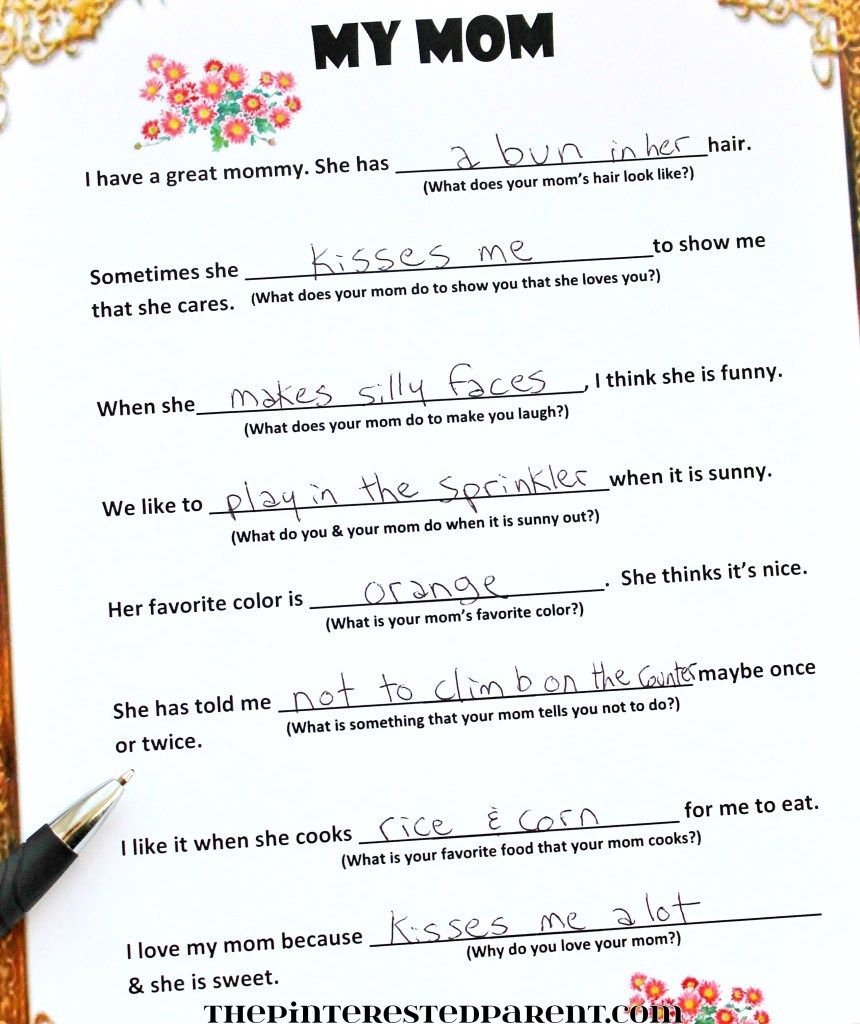 MY MOM
I have a great mommy. She has a bun in her hair.
(What does your mom's hair look like?)
Sometimes she kisses me to show me
that she cares. (What does your mom do to show you that she loves you?)
When she makes silly faces, I think she is funny.
(What does your mom do to make you laugh?)
We like to play in the sprinkler when it is sunny.
(What do you & your mom do when it is sunny out?)
Her favorite color is orange. She thinks it's nice.
(What is your mom's favorite color?)
She has told me not to climb on the counter maybe once
or twice. (What is something that your mom tells you not to do?)
I like it when she cooks rice & corn for me to eat.
(What is your favorite food that your mom cooks?)
I love my mom because kisses me a lot
(Why do you love your mom?)
& she is sweet.
THEPINTERESTEDPARENT.COM